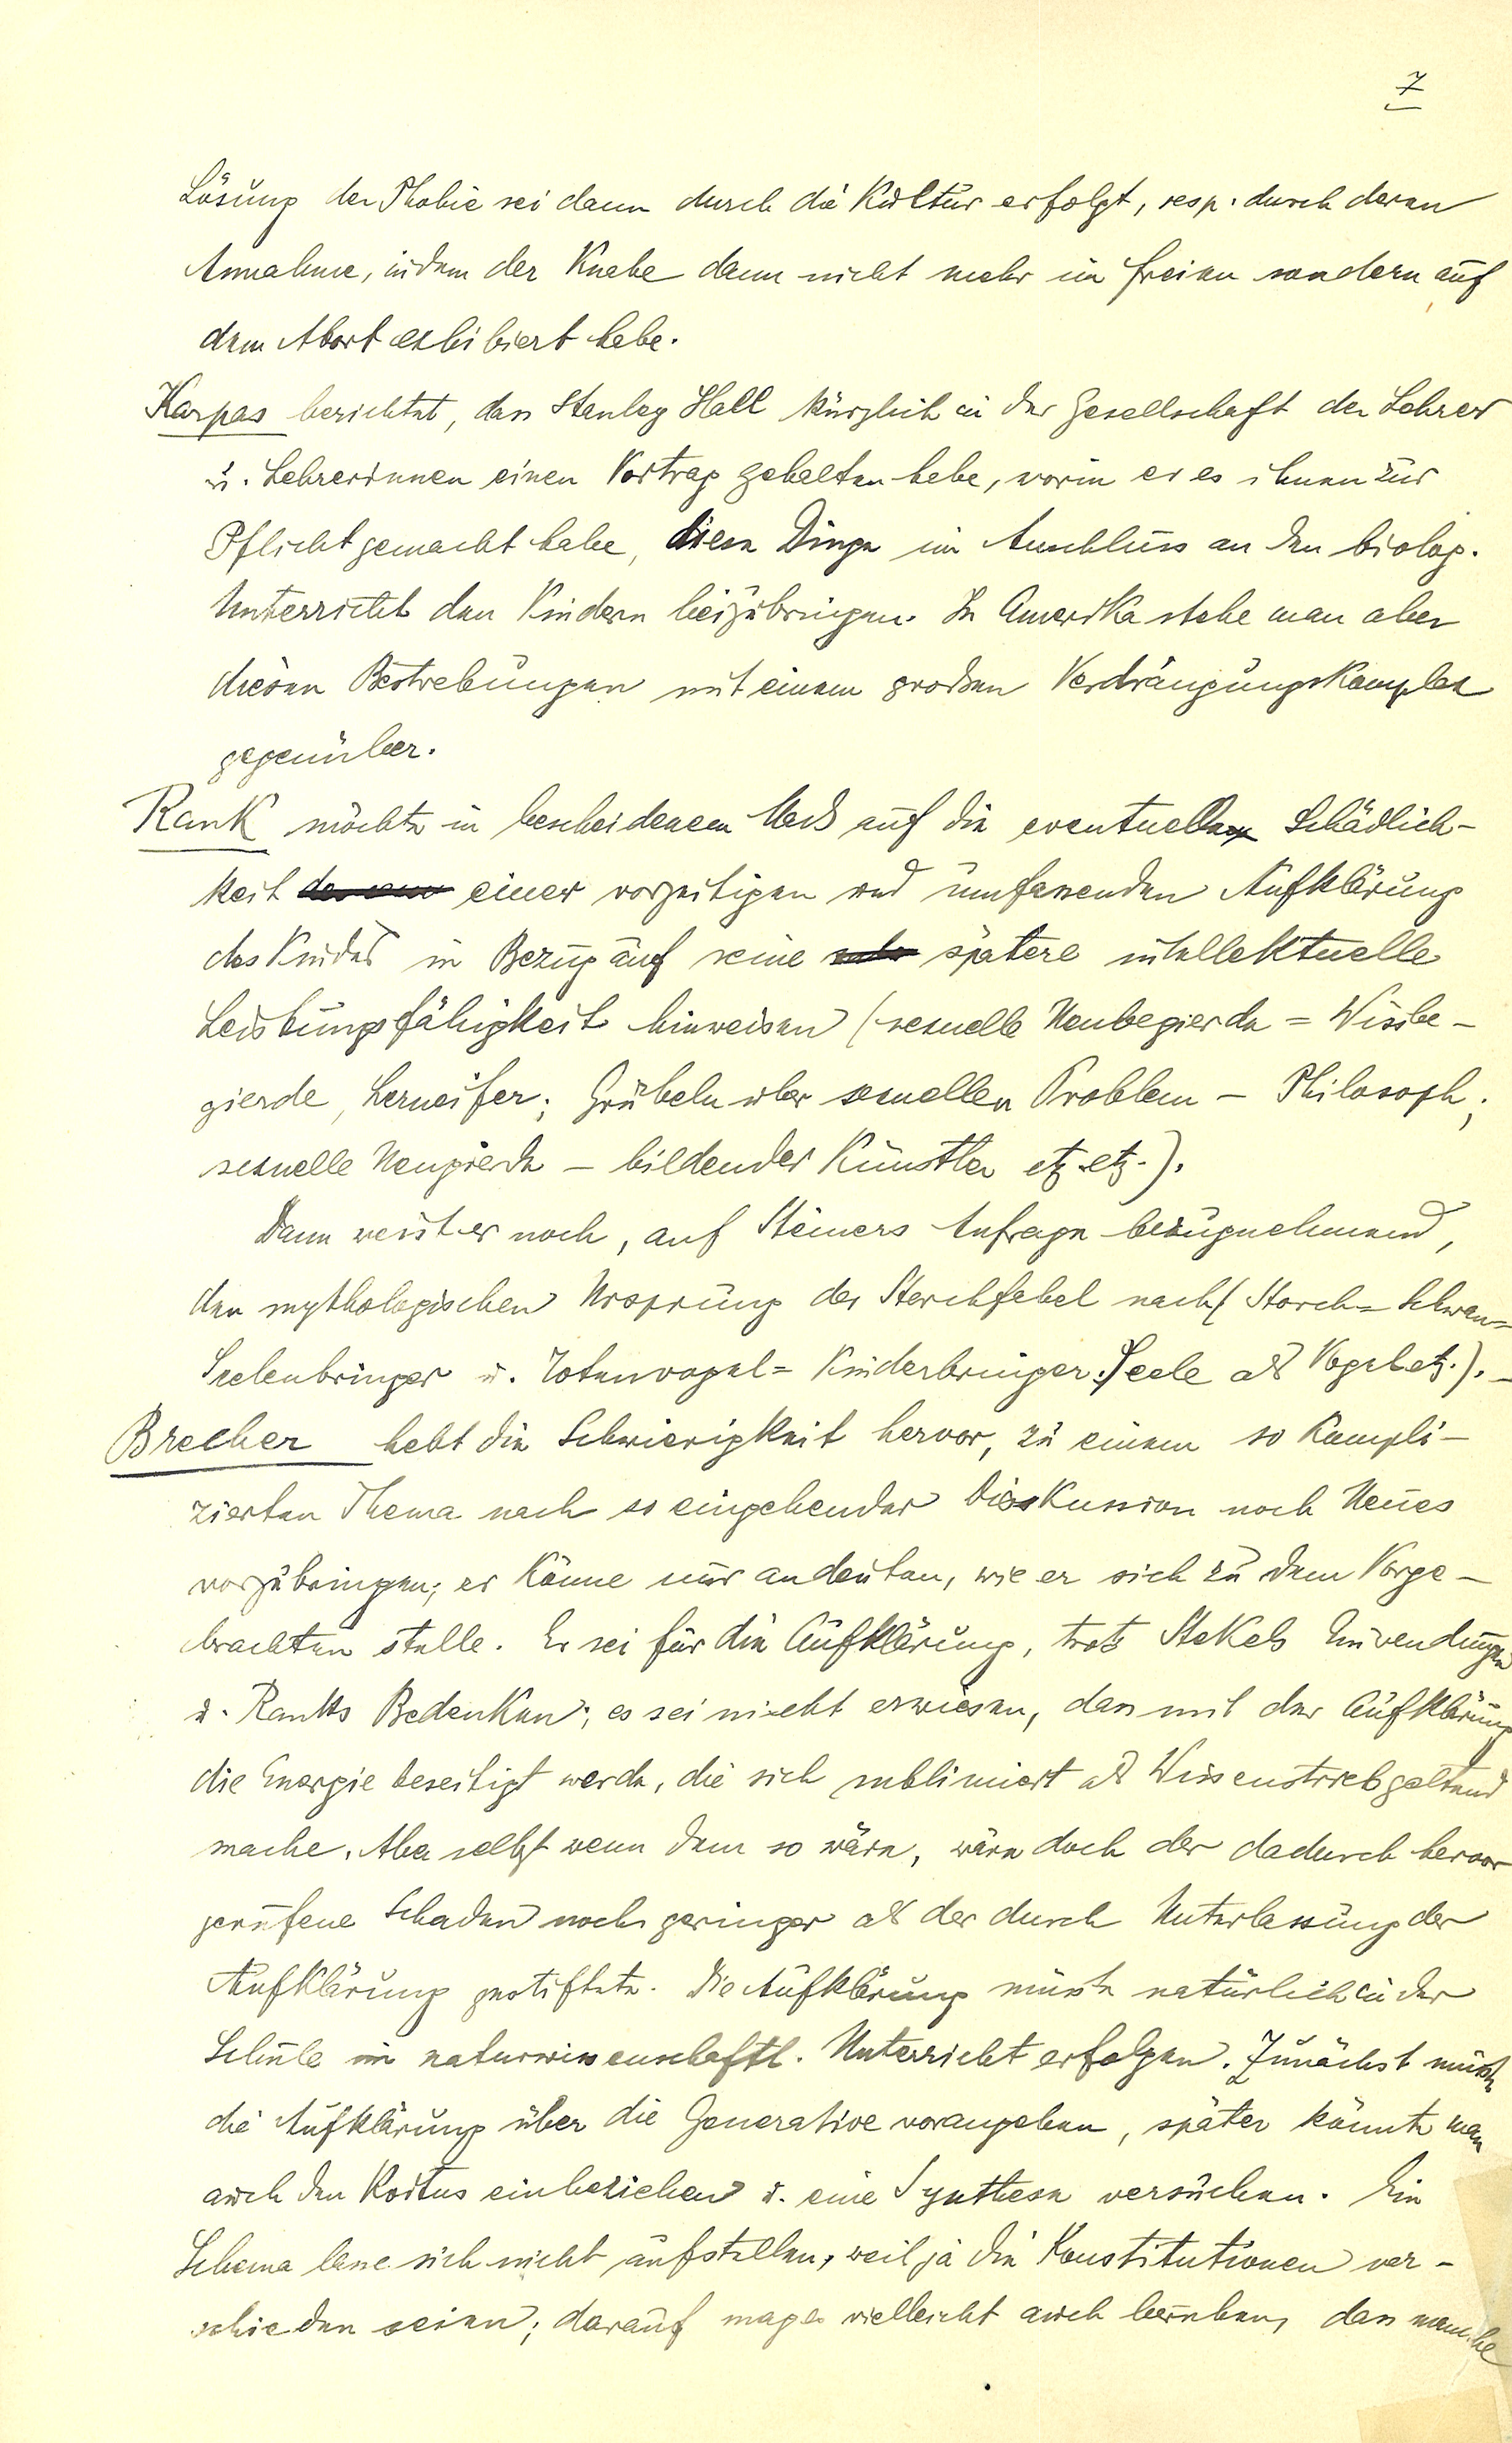 7
Lösung der Phobie sei dann durch die Kultur erfolgt, resp. durch deren
Annahme, indem der Knabe dann nicht mehr im freien sondern auf
dem Abort exhibiert habe.
Karpas berichtet, dass Stanley Hall kürzlich in der Gesellschaft der Lehrer
u. Lehrerinnen einen Vortrag gehalten habe, worin er es ihnen zur
Pflicht gemacht habe, diese Dinge im Anschluss an den biolog.
Unterricht den Kindern beizubringen. In Amerika stehe man aber
diesen Bestrebungen mit einem großen Verdrängungskomplex
gegenüber.
Rank möchte in bescheidenem Maß auf die eventuelle Schädlich-
keit einer vorzeitigen und umfassenden Aufklärung
des Kindes in Bezug auf seine spätere intellektuelle
Leistungsfähigkeit hinweisen (sexuelle Neubegierde = Wissbe-
gierde, Lerneifer; Grübeln über sexuellen Problem – Philosoph;
sexuelle Neugierde – bildender Künstler etz. etz.).
Dann weist er noch, auf Steiners Anfrage bezugnehmend,
den mythologischen Ursprung der Storchfabel nach (Storch = Schwan =
Seelenbringer u. Totenvogel = Kinderbringer. Seele als Vogel etz.). –
Brecher hebt die Schwierigkeit hervor, zu einem so kompli-
zierten Thema nach so eingehender Diskussion noch Neues
vorzubringen; er könne nur andeuten, wie er sich zu dem Vorge-
brachten stelle. Er sei für die Aufklärung, trotz Stekels Einwendungen
u. Ranks Bedenken; es sei nicht erwiesen, dass mit der Aufklärung
die Energie beseitigt werde, die sich sublimiert als Wissenstrieb geltend
mache. Aber selbst wenn dem so wäre, wäre doch der dadurch hervor
gerufene Schaden noch geringer als der durch Unterlassung der
Aufklärung gestiftete. Die Aufklärung müsste natürlich in der
Schule im naturwissenschaftl. Unterricht erfolgen. Zunächst müsste
die Aufklärung über die Generative vorangehen, später könnte man
auch den Koitus einbeziehen u. eine Synthese versuchen. Ein
Schema lasse sich nicht aufstellen, weil ja die Konstitutionen ver-
schieden seien; darauf mag es vielleicht auch beruhen, dass manche